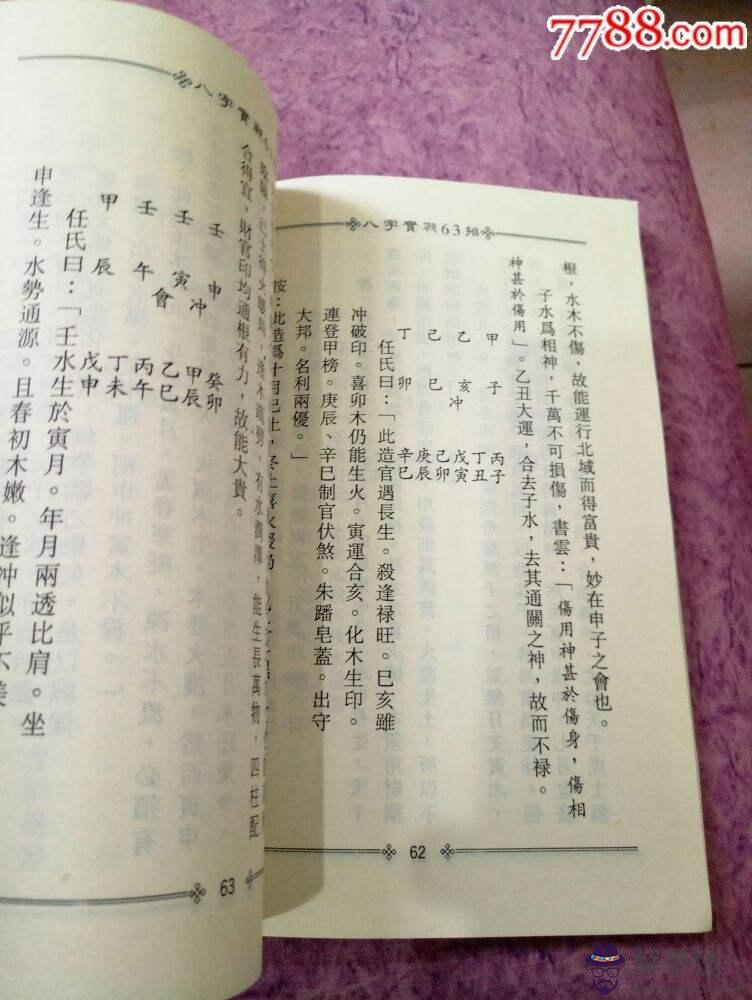 7788.com
八字實戰63招
根，水木不傷，故能運行北域而得富貴，妙在申子之會也。
子水爲相神，千萬不可損傷，書雲：「傷用神甚於傷身，傷相
神甚於傷用」。乙丑大運，合去子水，去其通關之神，故而不禄。
甲 子 丙子
乙 亥 冲 丁丑
戊寅
己 巳 己卯
庚辰
丁 卯 辛巳
任氏曰：「此造官遇長生。殺逢禄旺。巳亥雖
冲破印。喜卯木仍能生火。寅運合亥。化木生印。
連登甲榜。庚辰、辛巳制官伏煞。朱蹯皂蓋。出守
大邦。名利兩優。」
按：此造爲十月己土，
62
八字實戰6
逢木疏劈，有水潤澤，能生長萬物，四柱配
合得宜，財官印均通根有力，故能大貴。
壬 申 癸卯
冲 甲辰
壬 寅 乙巳
會
壬 午 丙午
丁未
甲 辰 戊申
任氏曰：「壬水生於寅月。年月兩透比肩。坐
申逢生。水勢通源。且春初木嫩。逢冲似乎不美
63